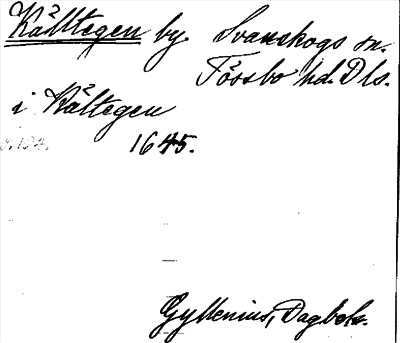 Kålltegen by Svanskogs sn.
Tössbo hd. Dls.
i Kåltegen
s. 132. 1645.
Gyllenius, Dagbok.